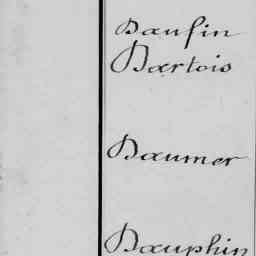 Daufin
Dartois
Daumer
Dauphin